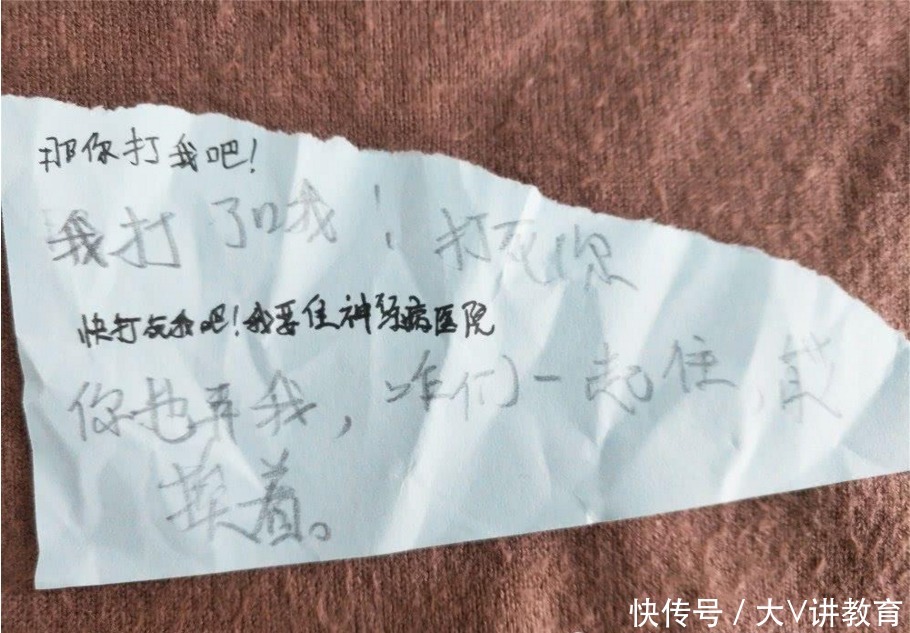 那你打我吧！
我打了哦！打死你
快打死我吧！我要住神经病医院
你也弄我，咱们一起住，
着。
快传号 / 大V讲教育